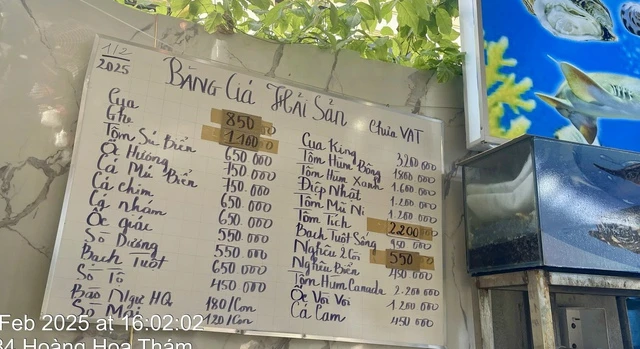 1/2
2025
BẢNG GIÁ HẢI SẢN
Chưa VAT
Cua 850
Ghẹ 1.100
Tôm Sú Biển 650 000
Ốc Hương 750 000
Cá Mú Biển 750.000
Cá chim 650 000
Cá nhám 650.000
Ốc giác 550.000
Sò Dương 550.000
Bạch Tuột 650 000
Sò Tô 450 000
Bào Ngư HQ 180/Con
Sò Mai 120/Con
Cua King 3200 000
Tôm Hùm Bông 1800 000
Tôm Hùm Xanh 1.600 000
Điệp Nhật 1.200 000
Tôm Mũ Ni 1.200 000
Tôm Tích 2.200
Bạch Tuột Sống 950 000
Nghêu 2 Cồi 550
Nghêu Biển 450 000
Tôm Hùm Canada 2.200 000
Ốc Vòi Voi 1 200 000
Cá Cam 450 000
Feb 2025 at 16:02:02
34 Hoàng Hoa Thám